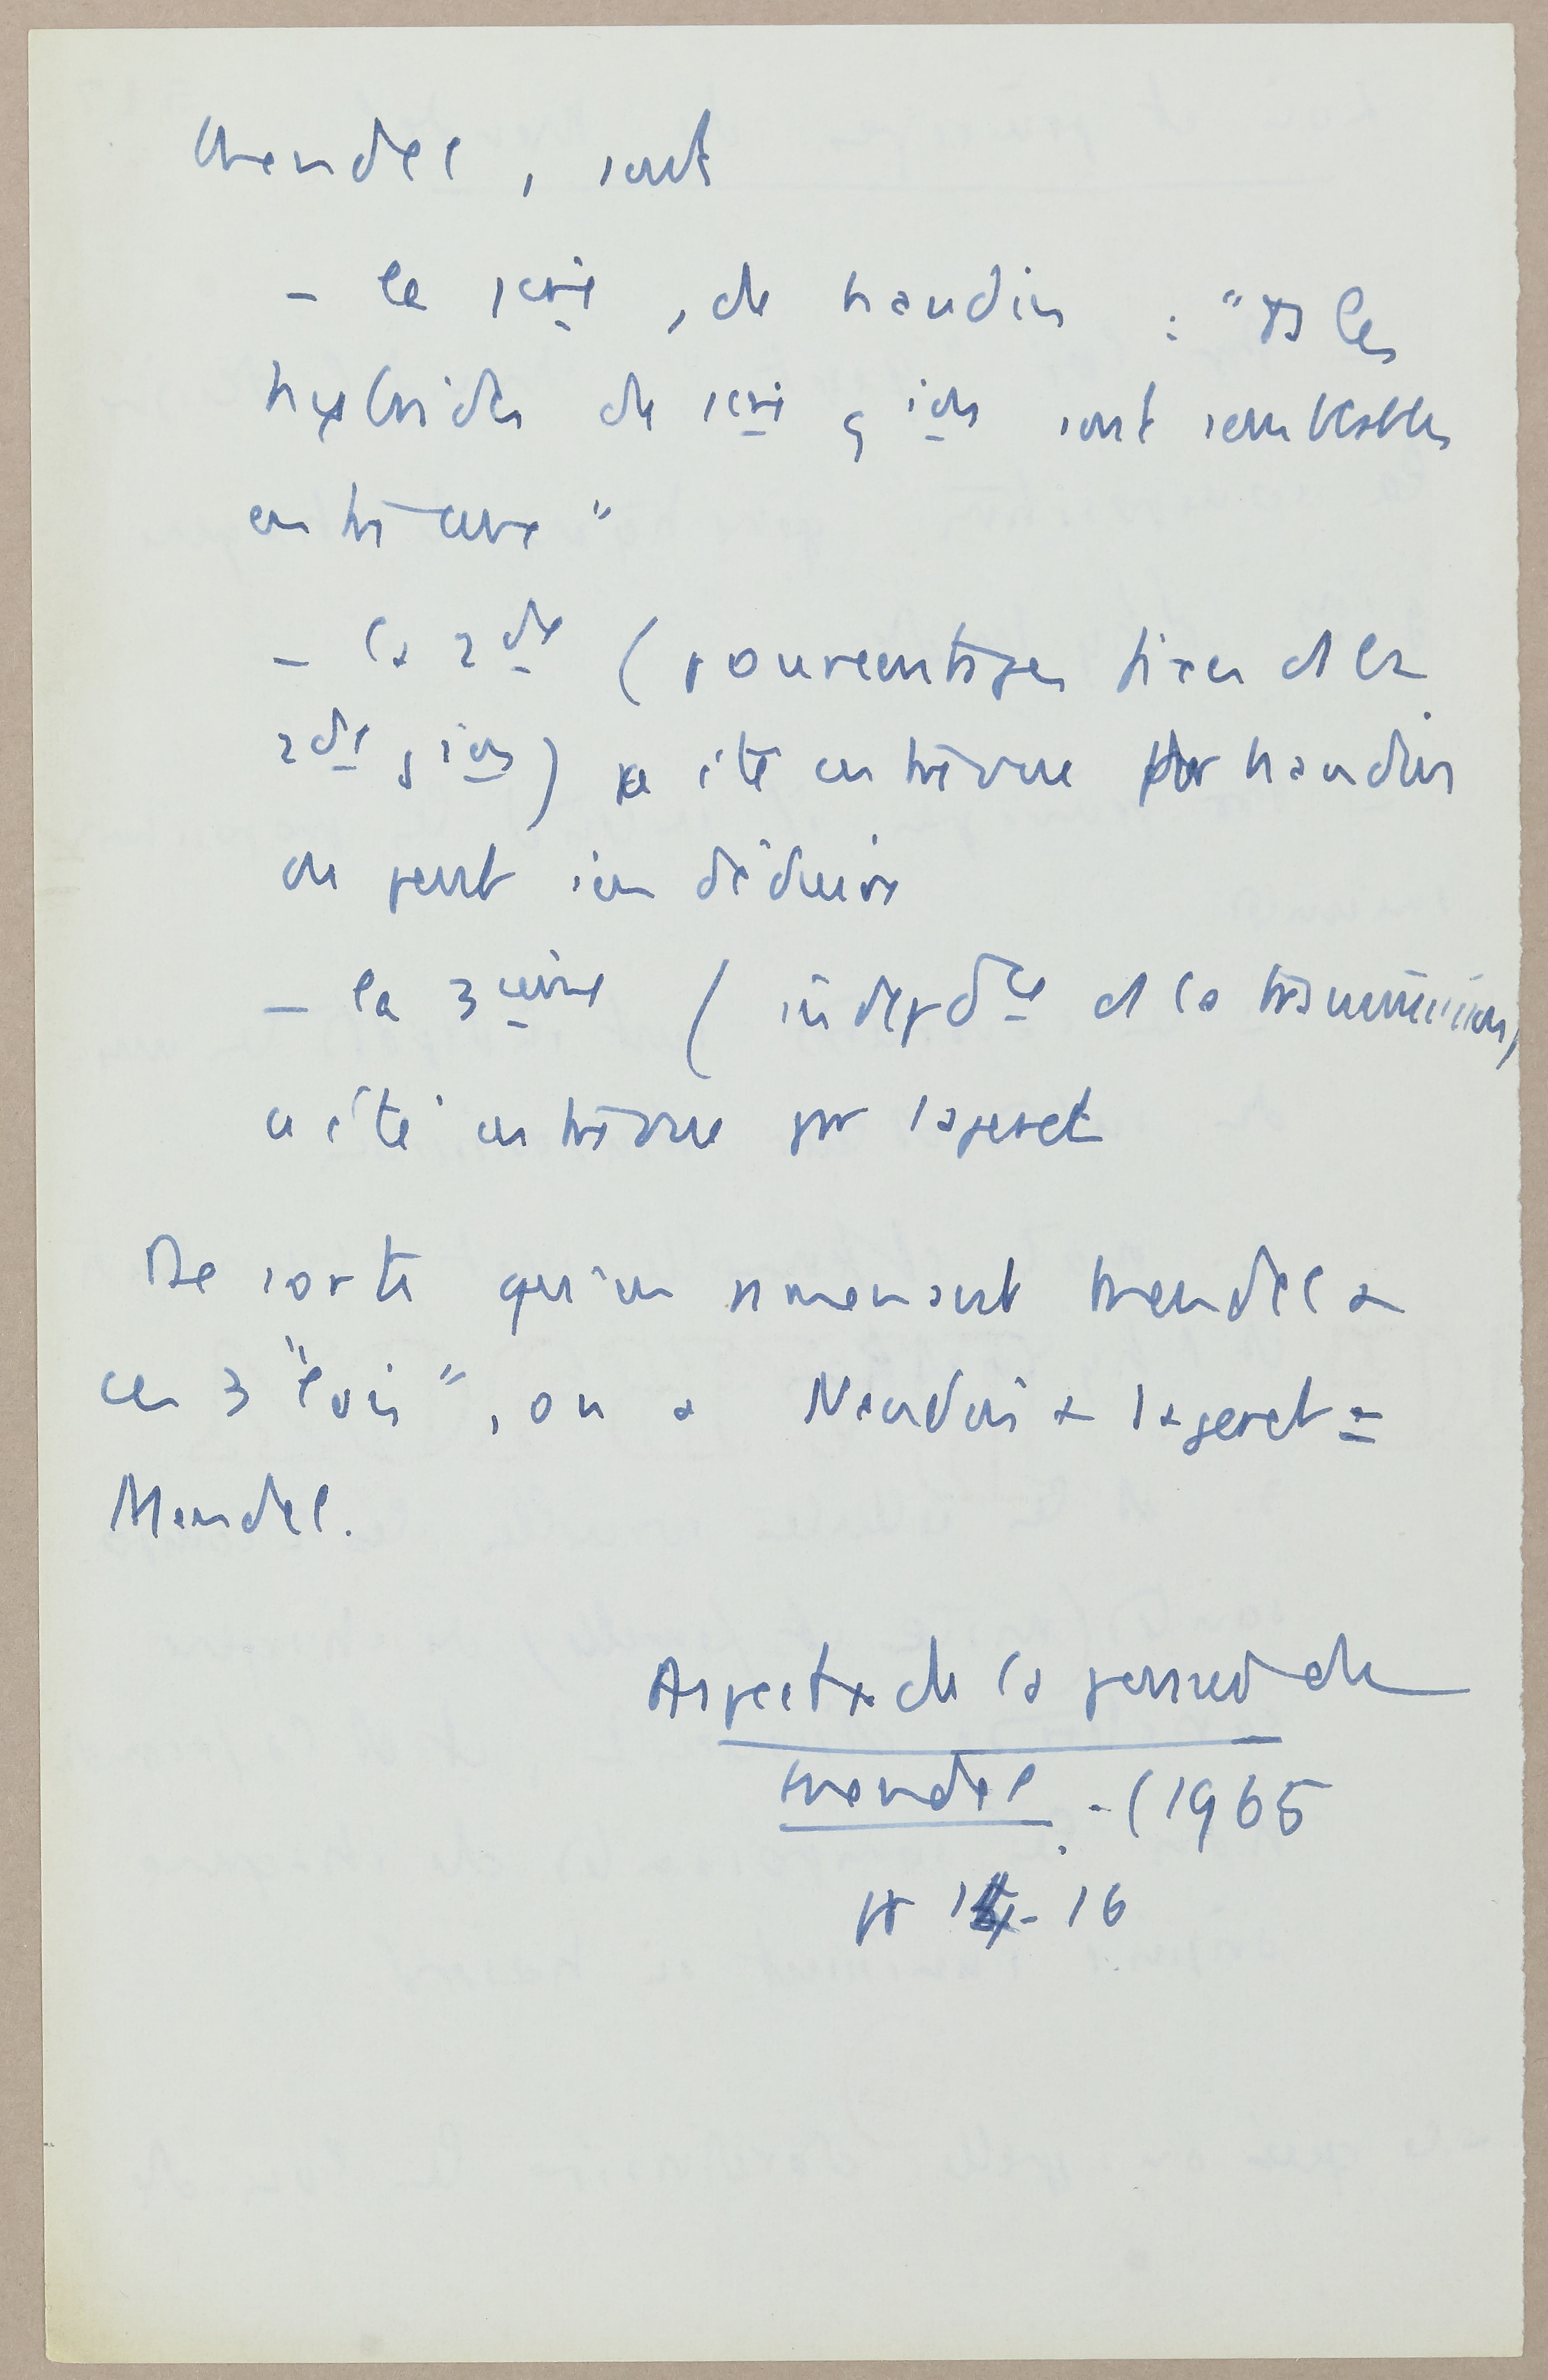 Mendel, sont
- la 1ère, de Naudin : "Ts les
hybrides de 1ère gion sont semblables
entre eux"
- la 2de (pourcentages fixes ds la
2de gion) a été entrevue par Naudin
on peut s'en déduire
- la 3ème (indépdce ds la transmission)
a été entrevue par Sageret
De sorte qu'en ramenant Mendel à
ces 3 "lois", on a Naudin + Sageret =
Mendel.
Aspects de la pensée de
Mendel. - (1965
pp 15-16